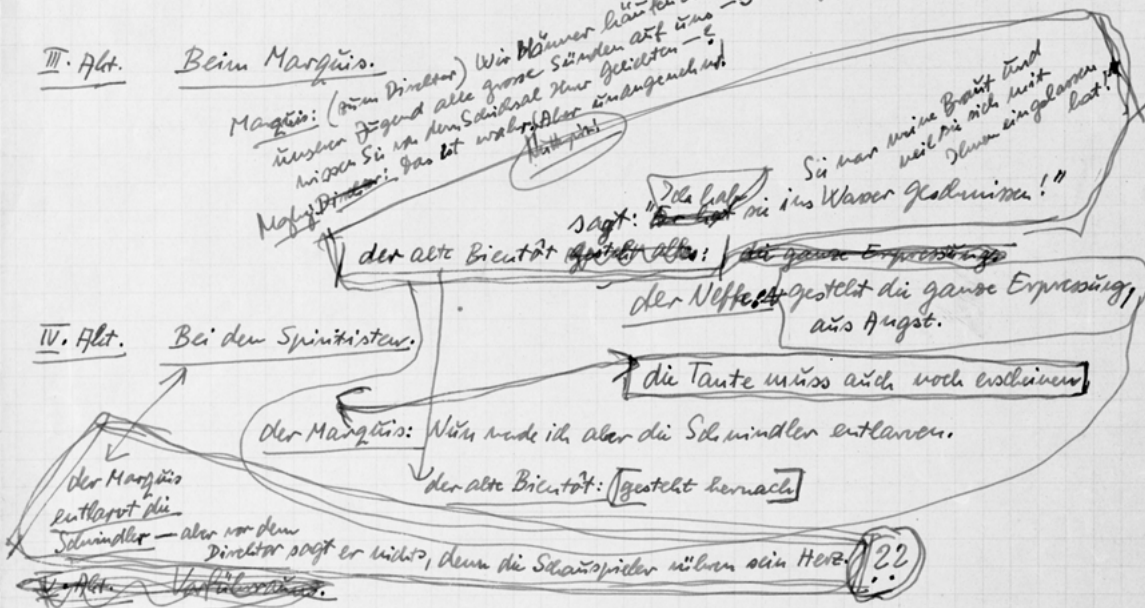 III. Akt. Beim Marquis.
Marquis: (zum Direktor) Wir Männer häufen
unserer Jugend alle grosse Sünden auf uns —
wissen Sie von dem Schicksal Ihrer Geliebten —?
Direktor: Das ist wahr. Aber unangenehm.
Sie war meine Braut und
weil sie sich mit
Ihnen eingelassen
hat!
"Ich habe
sagt: sie ins Wasser geschmissen!"
der alte Bientôt gesteht alles: die ganze Erpressung
der Neffe: gesteht die ganze Erpressung,
aus Angst.
IV. Akt. Bei den Spiritisten.
die Tante muss auch noch erscheinen
der Marquis: Nun werde ich aber die Schwindler entlarven.
der alte Bientôt: gesteht hernach
der Marquis
entlarvt die
Schwindler — aber vor dem
Direktor sagt er nichts, denn die Schauspieler rühren sein Herz.
22
V. Akt. Vorführraum.